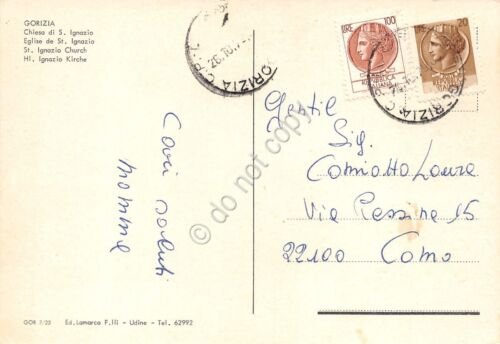 GORIZIA
Chiesa di S. Ignazio
Eglise de St. Ignazio
St. Ignazio Church
Hl. Ignazio Kirche
GORIZIA C.
26.10.
LIRE 100
REPUBBLICA
ITALIANA
LIRE 20
GORIZIA C.
Gentil
Sig.
Comiotto Laura
Via Pessina 15
22100 Como
Cari saluti
mamma
© do not copy
GOR 7/23 Ed. Lamarca F.lli - Udine - Tel. 62992